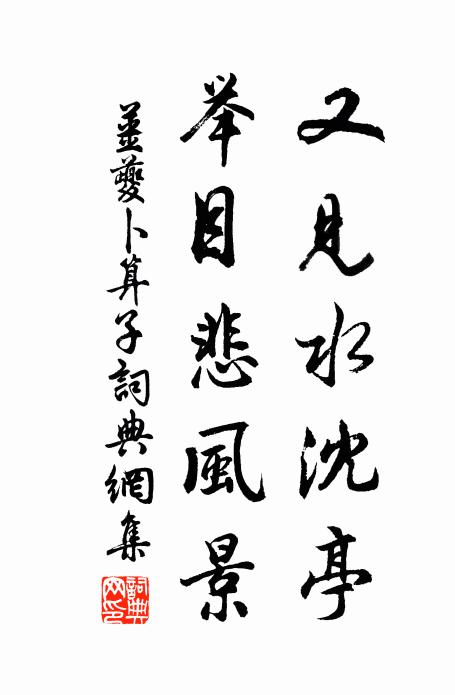 又見水沈亭
举目悲風景
姜夔卜算子詞典網集
詞典網印